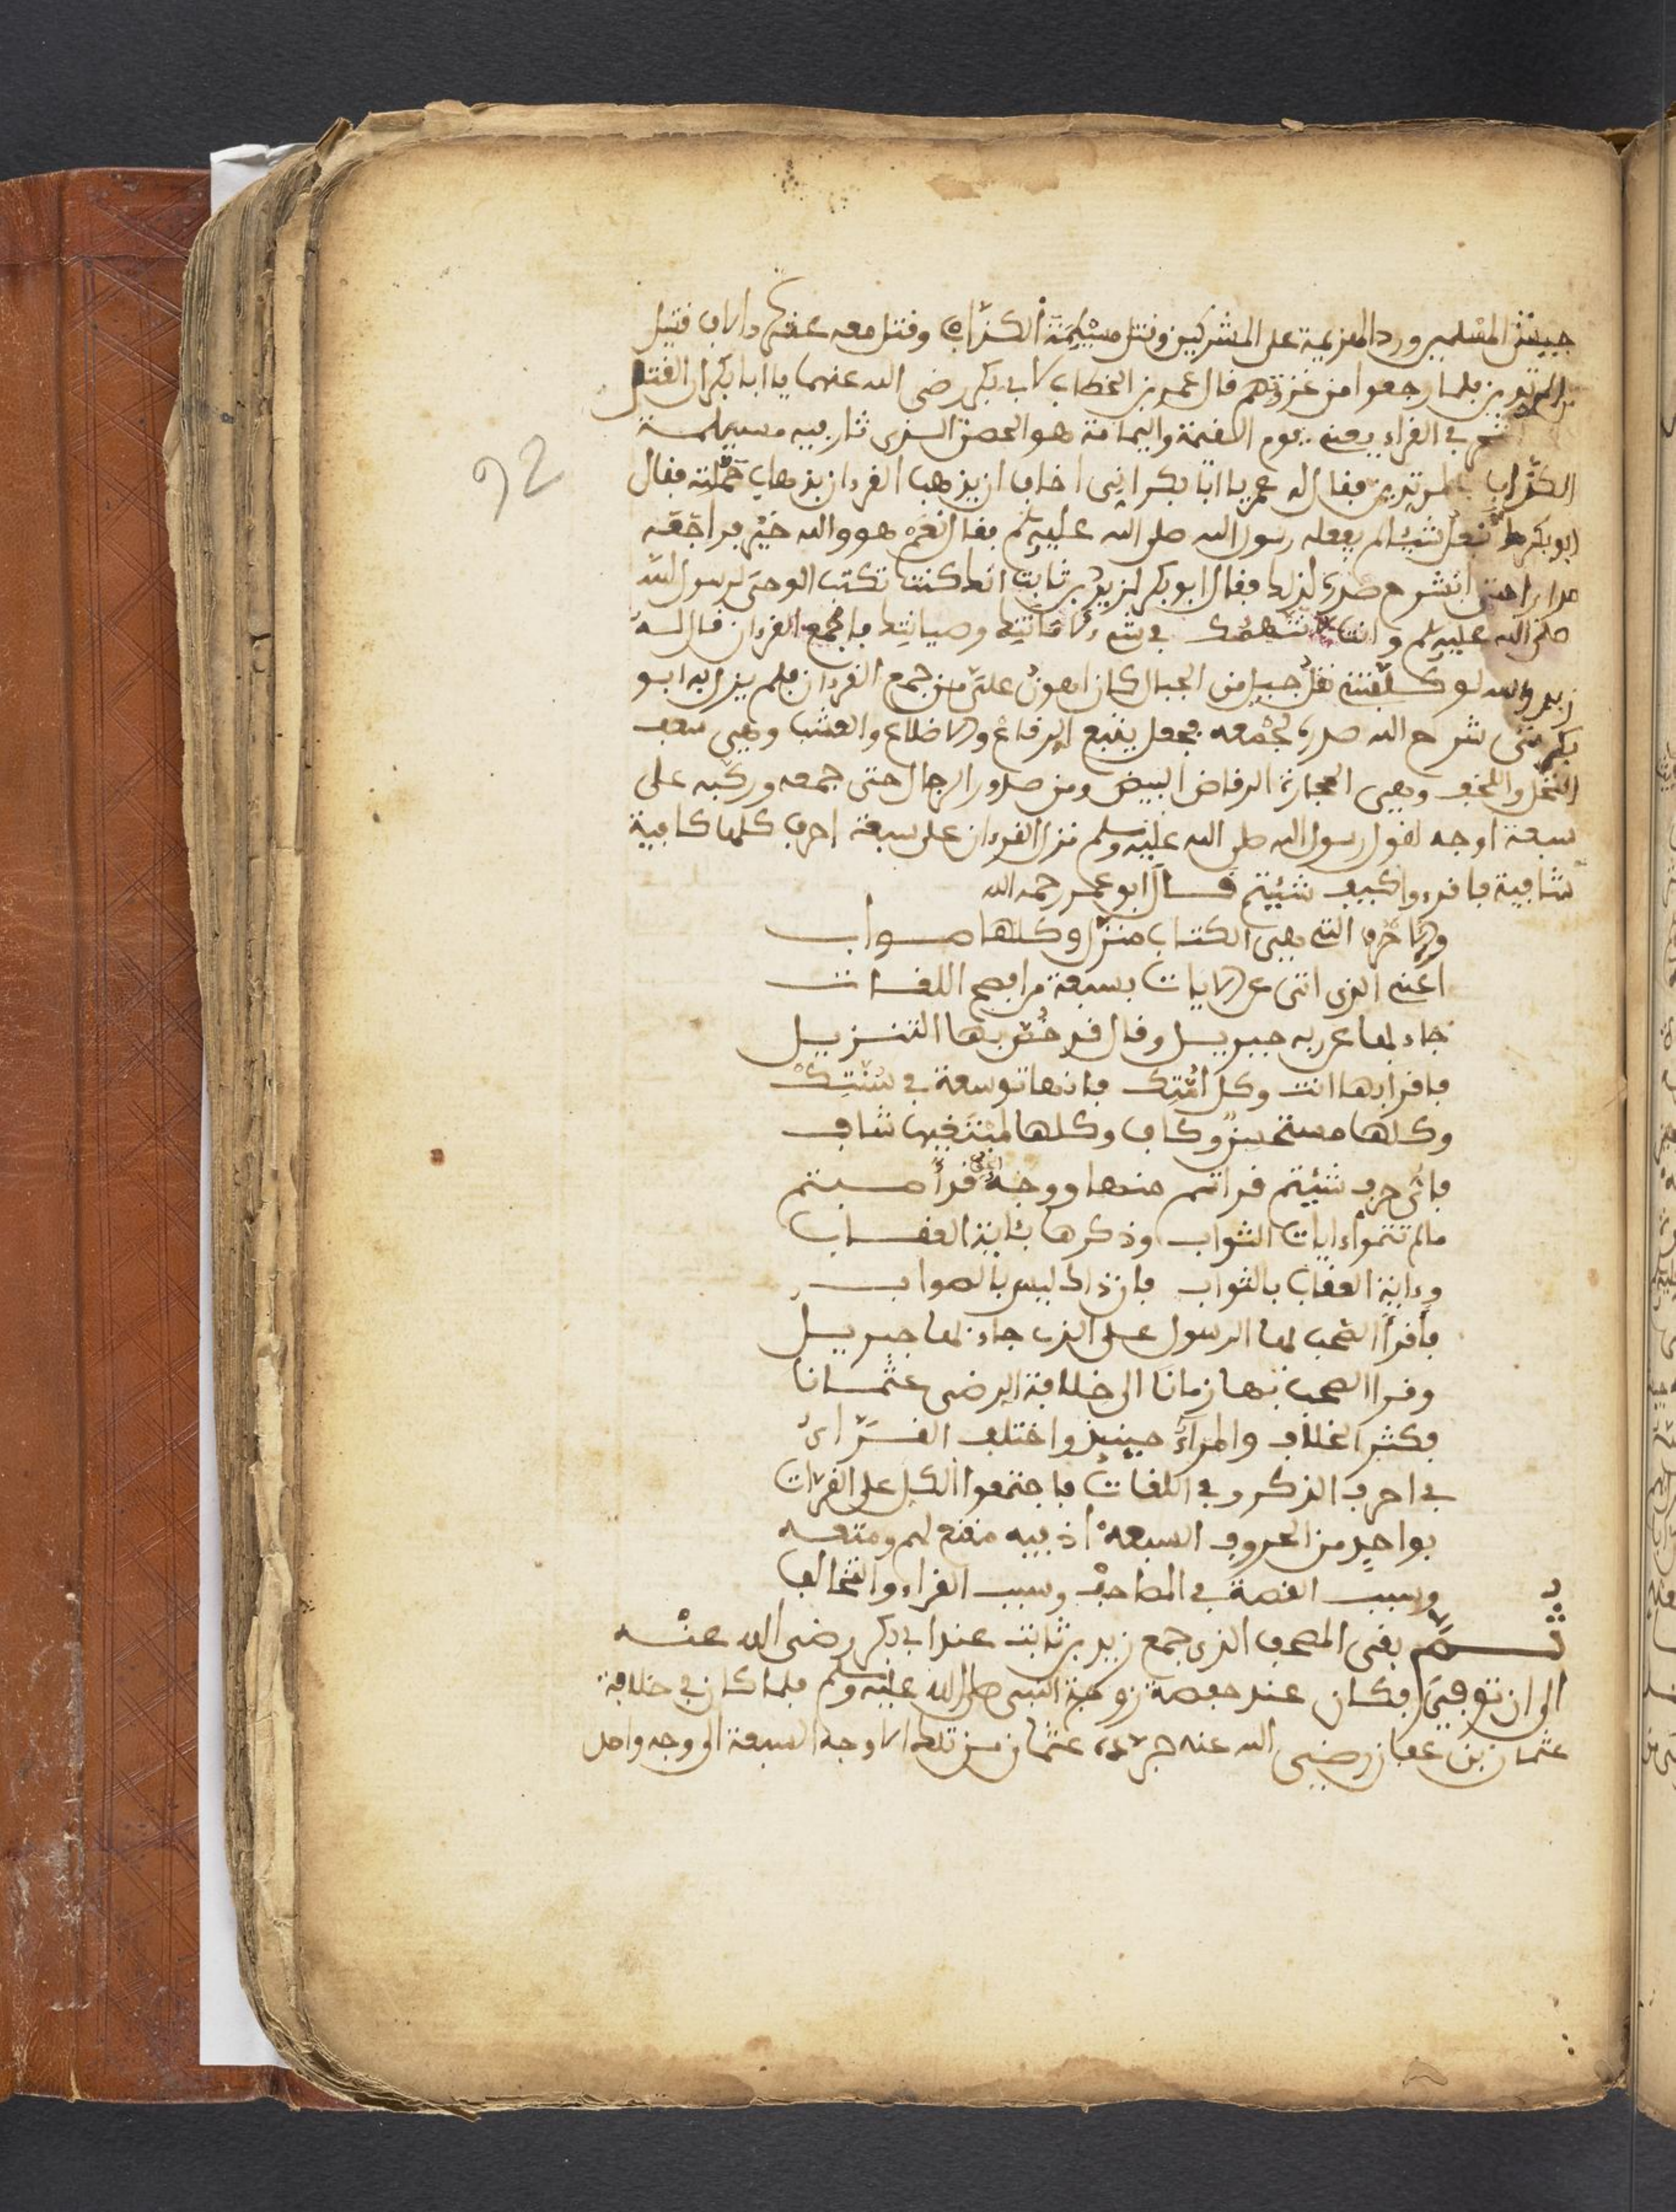 جييش المسلمين ورد الهزيمة على المشركين وقتل مسيلمة الكذاب وقتل معه عشرة ءالاف قتيل
من المرتدين فلما رجعوا من غزوتهم قال عمر بن الخطاب لابي بكر رضي الله عنهما يا ابا بكر ان القتل
في القراء يعني يوم اليمامة هو الحصن الذي ثار فيه مسيلمة
الكذاب بالمرتدين فقال له عمر يا ابا بكر اني اخاف ان يذهب القرءان بذهاب حملته فقال
ابو بكر نفعل شيئا لم يفعله رسول الله صلى الله عليه سلم فقال نعم هو والله خير فراجعه
مرارا حتى انشرح صدره لذلك فقال ابو بكر لزيد بن ثابت انك كنت تكتب الوحي لرسول الله
صلى الله عليه سلم وانت لا نتهمك في شيء لامانتك وصيانتك فاجمع القرءان قال له
زيد والله لو كلفتني نقل جبل من الجبال لكان اهون علي من جمع القرءان فلم يزل به ابو
بكر حتى شرح الله صدره لجمعه فجعل يتتبع الرقاع والاضلاع والعشب وهي سعف
النخل واللخف وهي الحجارة الرقاض البيض ومن صدور الرجال حتى جمعه وركبه على
سبعة اوجه لقول رسول الله صلى الله عليه وسلم نزل القرءان على سبعة احرف كلها كافية
شافية فاقرءوا كيف شيتم قال ابو عمر رحمه الله
والاحرف التي بهن الكتاب منزل وكلها صواب
اعني الذي اتى عن الايات بسبعة من افصح اللغات
جاء بها عن ربه جبريل وقال قد خص بها التنزيل
فاقرا بها انت وكل امتك فانها توسعة في سنتك
وكلها مستحسن وكاف وكلها لمبتغيها شاف
فاي حرف شيتم قراتم منها ووجه قرا صبتم
ما لم تتموا ءايات الثواب وذكرها بئاية العقاب
وءاية العقاب بالثواب فان ذاك ليس بالصواب
فاقرا الصحب بها الرسول على الذي جاء بها جبريل
وقرا الصحب بها زمانا الى خلافة الرضى عثمانا
فكثر الخلاف والمراء حينيذ واختلف القراء
في احرف الذكر وفي اللغات فاجتمعوا الكل على القرات
بواحد من الحروف السبعه اذ فيه مقنع لهم ومتعه
وسبب القصة في المصاحف وسبب القراء والتخالف
ثم بقي المصحف الذي جمع زيد بن ثابت عند ابي بكر رضى الله عنه
الى ان توفي فكان عند حفصة زوجة النبي صلى الله عليه وسلم فلما كان في خلافة
عثمان بن عفان رضي الله عنه جرده عثمان من تلك الاوجه السبعة الى وجه واحد
92